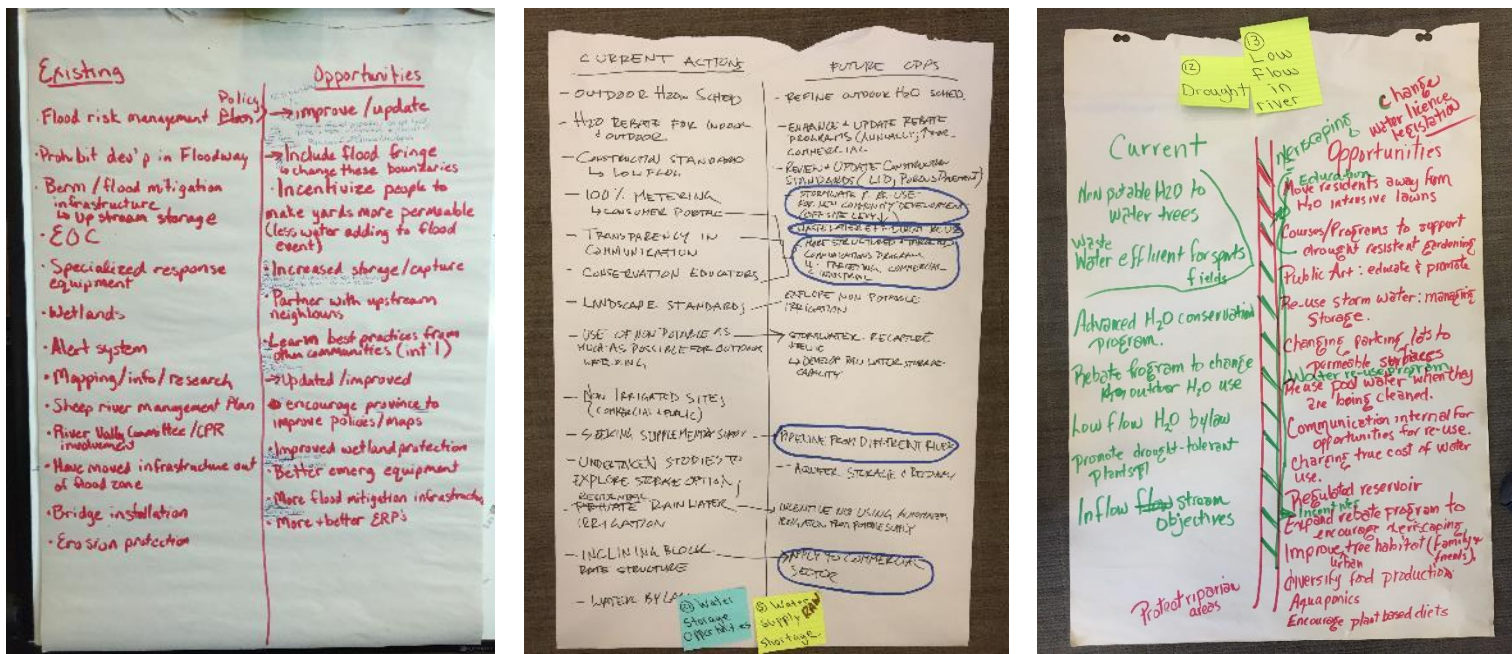 Existing
Flood risk management Policy
Plan
· Prohibit dev'p in Floodway
· Berm / flood mitigation
infrastructure
↳ Up stream storage
· EOC
· Specialized response
equipment
· Wetlands
· Alert system
· Mapping/info/research
· Sheep river management Plan
· River Vally Committee/CPR
involvement
· Have moved infrastructure out
of flood zone
· Bridge installation
· Erosion protection
Opportunities
→ improve / update
→ Include flood fringe
↳ change these boundaries
· Incentivize people to
make yards more permeable
(less water adding to flood
event)
· Increased storage/capture
· Partner with upstream
neighbours
· Learn best practices from
other communities (int'l)
→ Updated/improved
encourage province to
improve policies/maps
· Improved wetland protection
· Better emerg equipment
· More flood mitigation infrastructure
· More + better ERP's
CURRENT ACTIONS
- OUTDOOR H2O SCHED
- H2O REBATE FOR INDOOR
+ OUTDOOR
- CONSTRUCTION STANDARD
↳ LOW FLOW
- 100% METERING
↳ CONSUMER PORTAL
- TRANSPARENCY IN
COMMUNICATION
- CONSERVATION EDUCATORS
- LANDSCAPE STANDARDS
- USE OF NON POTABLE AS
MUCH AS POSSIBLE FOR OUTDOOR
- NON IRRIGATED SITES
(COMMERCIAL + PUBLIC)
- SEEKING SUPPLEMENTAL SUPPLY
- UNDERTAKEN STUDIES TO
EXPLORE STORAGE OPTIONS
RESIDENTIAL
- PRIVATE RAIN WATER
IRRIGATION
- INCLINING BLOCK
RATE STRUCTURE
- WATER BYLAW
FUTURE OPPS
- REFINE OUTDOOR H2O SCHED.
- ENHANCE + UPDATE REBATE
PROGRAMS (ANNUALLY; FOR
COMMERCIAL
- REVIEW + UPDATE CONSTRUCTION
STANDARDS (LID, POROUS PAVEMENT)
- STORMWATER RE-USE
FOR NEW COMMUNITY DEVELOPMENT
(OFF SITE LEVY)
WASTEWATER EFFLUENT RE-USE
- MORE STRUCTURED + TARGETED
COMMUNICATIONS PROGRAM
↳ TARGETING COMMERCIAL
+ INDUSTRIAL
EXPLORE NON POTABLE
IRRIGATION
STORMWATER RECAPTURE
↳ DEVELOP RAIN WATER STORAGE
CAPACITY
PIPELINE FROM DIFFERENT RIVER
- AQUIFER STORAGE & RECOVERY
INCENTIVE NOT USING AUTOMATED
IRRIGATION FROM POTABLE SUPPLY
APPLY TO COMMERCIAL
SECTOR
Water
Storage
Opportunities
Water
Supply RAW
Shortage.
12
Drought
13
Low
flow
in
river
Change
water licence
legislation
Current
Non potable H2O to
water trees
Waste
Water effluent for sports
fields
Advanced H2O conservation
program.
Rebate program to change
outdoor H2O use
Low flow H2O bylaw
Promote drought-tolerant
plants
Inflow flow stream
objectives
Protect riparian
areas
Xeriscaping
Opportunities
Education
Move residents away from
H2O intensive lawns
Courses/Programs to support
drought resistent gardening
Public Art: educate & promote
Re-use storm water: managing
Storage.
Changing parking lots to
permeable surfaces
Water re-use program
Re use pool water when they
are being cleaned.
Communication internal for
opportunities for re-use.
Charging true cost of water
use.
Regulated reservoir
Incentives
Expand rebate program to
encourage xeriscaping
Improve tree habitat (family +
urban friends)
diversify food production
Aquaponics
Encourage plant based diets